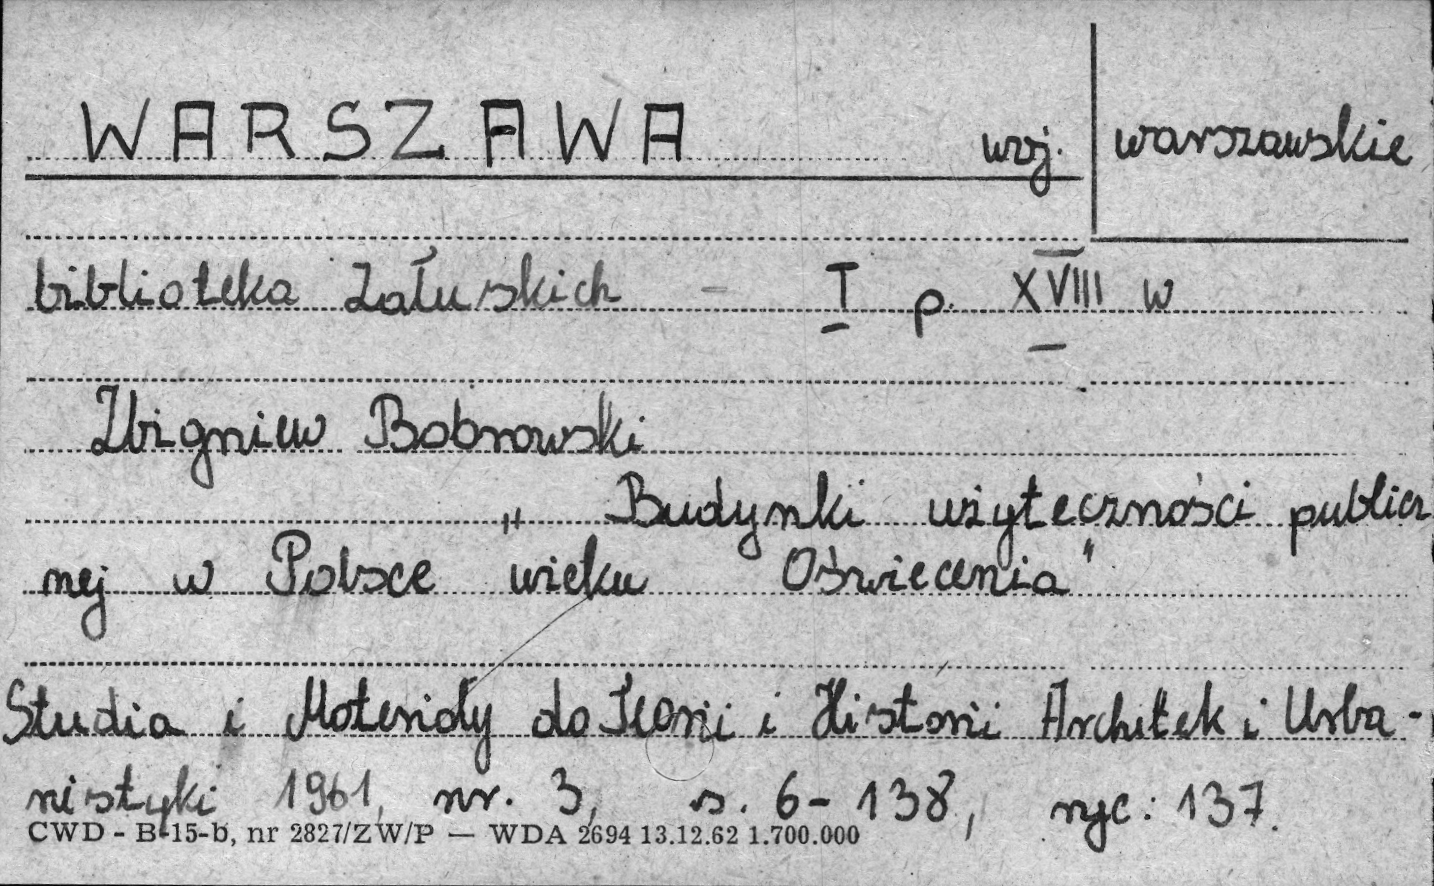 WARSZAWA woj. warszawskie
biblioteka Załuskich - I p. XVIII w
Zbigniew Bobrowski
„Budynki użyteczności publicz
nej w Polsce wieku Oświecenia"
Studia i Materiały do Teorii i Historii Architek i Urba-
nistyki 1961, nr. 3, s. 6-138, ryc: 137.
CWD - B-15-b, nr 2827/ZW/P — WDA 2694 13.12.62 1.700.000